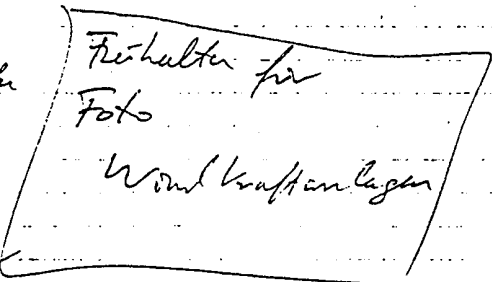 Freihalten für
Foto
Windkraftanlagen